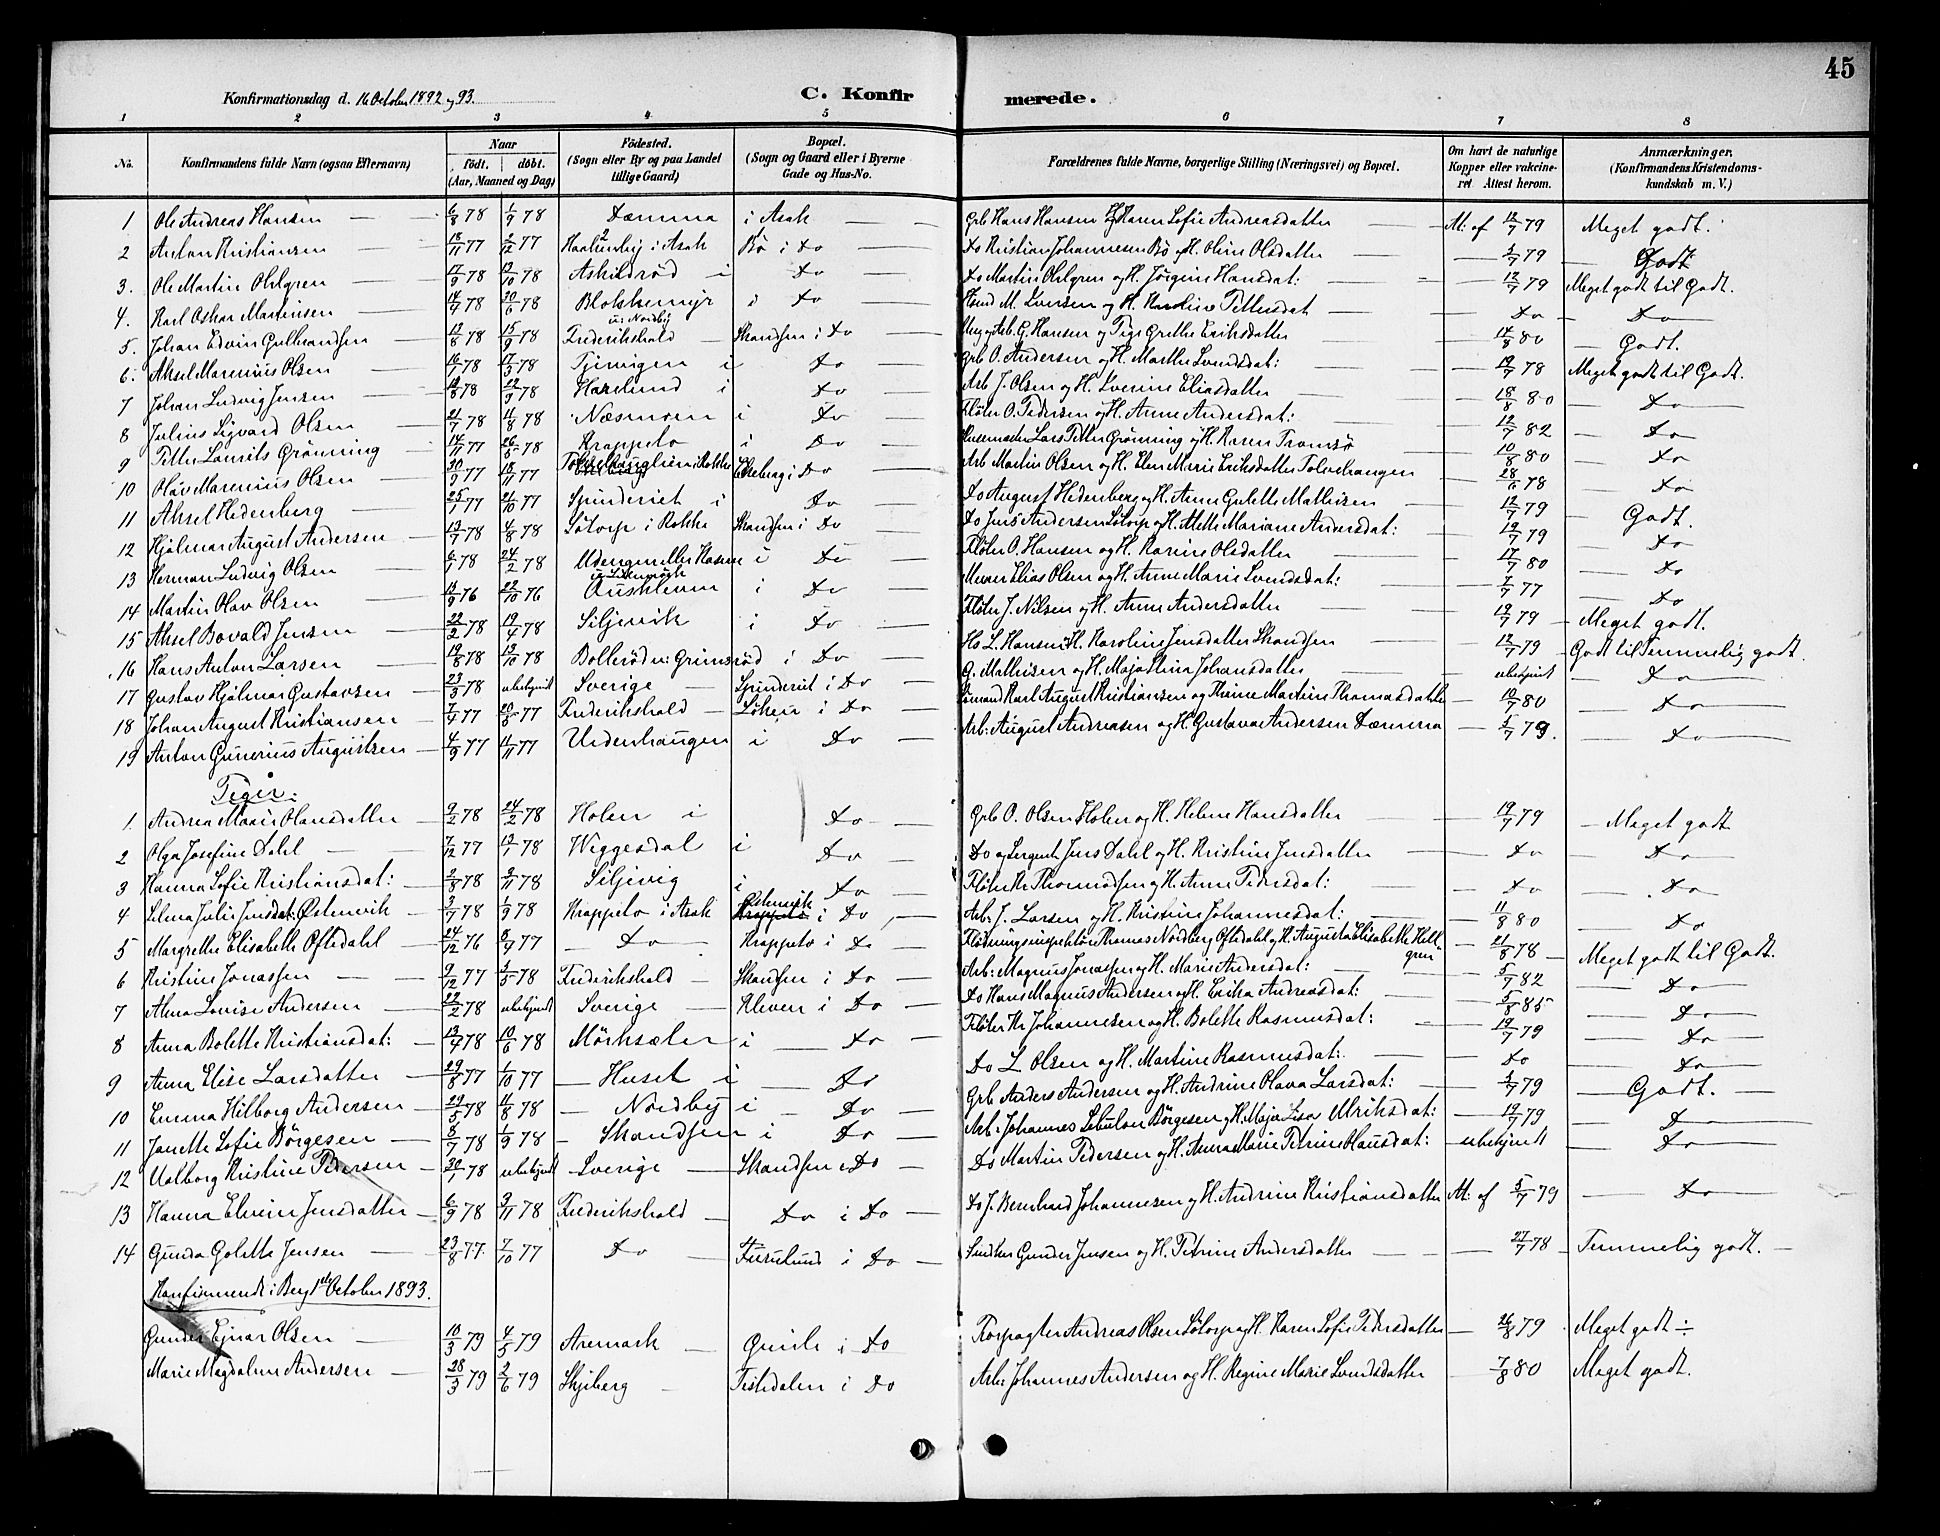 45
Konfirmationsdag d. 16 October 1892 og 93. C. Konfirmerede.
1 2 3 4 5 6 7 8
No. Konfirmandens fulde Navn (ogsaa Efternavn) Naar födt. döbt. (Aar, Maaned og Dag) Födested. (Sogn eller By og paa Landet tillige Gaard) Bopæl. (Sogn og Gaard eller i Byerne Gade og Hus-No. Forældrenes fulde Navne, borgerlige Stilling (Næringsvei) og Bopæl. Om havt de naturlige Kopper eller vakcineret Attest herom. Anmærkninger. (Konfirmandens Kristendomskundskab m. V.)
1 Ole Andreas Hansen 6/8 78 1/9 78 Dæmma i Asak Grb Hans Hansen og H Karen Sofie Andreasdatter At: af 12/7 79 Meget godt.
2 Anton Kristiansen 18/11 77 2/12 77 i Asak Bö i Do Do Kristian Johannesen Bö og H. Oline Olsdatter 5/7 79 Godt
3. Ole Martin Ohlgren 17/9 78 13/10 78 Askilsröd i Do Do Martin Ohlgren og H. Jörgine Hansdat: 12/7 79 Meget godt til Godt.
4. Karl Oskar Martinsen 14/4 78 30/6 78 Blokkemyr u: Nordby i Do M. Iversen og H. Karoline Pettersdat Do Do
5. Johan Edvin Gulbrandsen 13/8 78 15/9 78 Frederikshald Skandsen i Do Ung og Arb. G. Hansen og Pige Grethe Eriksdatter 14/8 80 Godt.
6. Aksel Marenius Olsen 16/7 78 17/3 78 i Do Grb O. Andersen og H. Marthe Svendsdat: 19/7 78 Meget godt til Godt.
7 Johan Ludvig Jensen 78 22/9 78 Haralund i Do Arb J. Olsen og H. Severine Eliasdatter 18/8 80 Do
8 Julius Sigvard Olsen 21/7 78 11/8 78 Næsmoen i Do Flöter O. Pedersen og H. Anne Andersdat: 12/7 82 Do
9 Petter Laurits Grönning 14/11 77 26/5 78 Krappeto i Do Lars Petter Grönning og H. Karen Tromsö 10/8 80 Do
10 Olav Marenius Olsen 30/9 77 18/11 77 i Rokke Ekeberg i Do Arb Martin Olsen og H. Elen Marie Eriksdatter Tolvehaugen 28/6 78 Do
11 Aksel Hedenberg 25/7 77 21/10 77 Spinderiet i Do Do August Hedenberg og H. Anne Gulette Mathisen 12/7 79 Godt.
12 Hjalmar August Andersen 13/7 78 4/8 78 Sötorp i Rokke Skandsen i Do Do Jens Andersen Sötorp og H. Mette Mariane Andersdat: 19/7 79 Do
13 Herman Ludvig Olsen 6/1 78 24/2 78 i Do Flöter O. Hansen og H. Karine Olsdatter 17/7 80 Do
14 Martin Olav Olsen 13/9 76 22/10 76 i Do Murer Elias Olsen og H. Anne Marie Svendsdat: 7/7 77 Do
15 Aksel Bovald Jensen 22/2 78 19/4 78 Siljevik i Do Flöter J. Nilsen og H. Anne Andersdatter 19/7 79 Meget godt.
16 Hans Anton Larsen 19/8 78 13/10 78 Bolleröd u: Grimsröd i Do Hs L. Hansen H. Karoline Jensdatter Skandsen 12/7 79 Godt til Temmelig godt.
17 Gustav Hjalmar Gustavsen 23/3 78 ubekjendt Sverige Spinderiet i Do G. Mathisen og H. Maja Stina Johansdatter ubekjendt Do
18 Johan August Kristiansen 7/4 77 20/5 77 Frederikshald Löken i Do Sömand Karl August Kristiansen og Martine Thomasdatter 10/7 80 Do
19 Anton Gunerius Augustsen 4/9 77 11/11 77 Undenhaugen i Do Arb: August Andreasen og H. Gustava Andersen Dæmma 5/7 79. Do
Piger:
1. Andrea Marie Olausdatter 9/2 78 24/2 78 Holen i Do Grb O. Olsen Holen og H. Helene Hansdatter 19/7 79 Meget godt
2 Olga Josefine Dahl 7/12 77 13/1 78 Wiggesdal i Do Do og Sergent Jens Dahl og H. Kristine Jensdatter Do Do
3 Hanna Sofie Kristiansdat: 2/8 78 3/11 78 Siljevig i Do Flöter Kr Thomassen og H. Anne Pedersdat: Do Do
4 Selma Julie Jensdat: Östenvik 3/7 78 1/9 78 Krappeto i Asak Östenvik Krappeto i Do Arb: J. Larsen og H. Kristine Johannesdat: 11/8 80 Do
5 Margrethe Elisabeth Oftedahl 24/12 76 8/4 77 Do Krappeto i Do Flödningsinspektör Thomas Nordberg Oftedahl og H. Augusta Elisabethe Hellgren 21/8 78 Meget godt til Godt.
6 Kristine Jonassen 9/12 77 5/5 78 Frederikshald Skandsen i Do Arb: Magnus Jonassen og H. Marie Andersdat: 5/7 82 Do
7 Alma Lovise Andersen 22/2 78 ubekjendt Sverige Kleven i Do Do Hans Magnus Andersen og H. Erika Andreasdat: 5/8 85 Do
8 Anna Bolette Kristiansdat: 13/4 78 10/6 78 Mörksæter i Do Flöter Kr Johannesen og H. Bolette Rasmusdat: 19/7 79 Do
9 Anna Elise Larsdatter 29/8 77 1/10 77 Huset i Do Do L Olsen og H. Martine Rasmusdat: Do Do
10 Emma Hilborg Andersen 29/5 78 11/8 78 Nordby i Do Grb Anders Andersen og H. Andrine Olava Larsdat: 5/7 79 Godt.
11 Janette Sofie Börgesen 8/7 78 1/9 78 Skandsen i Do Arb: Johannes Sebulon Börgesen og H. Maja Lisa Ulriksdat: 19/7 79 D
12 Valborg Kristine Pedersen 30/1 78 ubekjendt Sverige Skandsen i Do Do Martin Pedersen og H. Anna Marie Petrine Hansdat: ubekjendt Do
13 Hanna Elvine Jensdatter 6/9 78 3/11 78 Frederikshald Do i Do Do J. Bernhard Johannesen og H. Andrine Kristiansdatter At: af 5/7 79 Do
14 Gunda Golette Jensen 23/8 77. 7/10 77 Do Furulund i Do Gunder Jensen og H. Petrine Andersdatter 27/7 78 Temmelig godt.
Konfirmerede i Berg 1ste October 1893.
Gunder Ejnar Olsen 10/3 79 4/5 79 Aremark i Do Forpagter Andreas Olsen Sötorp og H. Karen Sofie Pedersdatter 26/8 79 Meget godt ÷
Marie Magdalene Andersen 28/3 79 2/6 79 Skjeberg Tistedalen i Do Arb: Johannes Andersen og H. Regine Marie Svendsdatter 7/8 80 Meget godt.